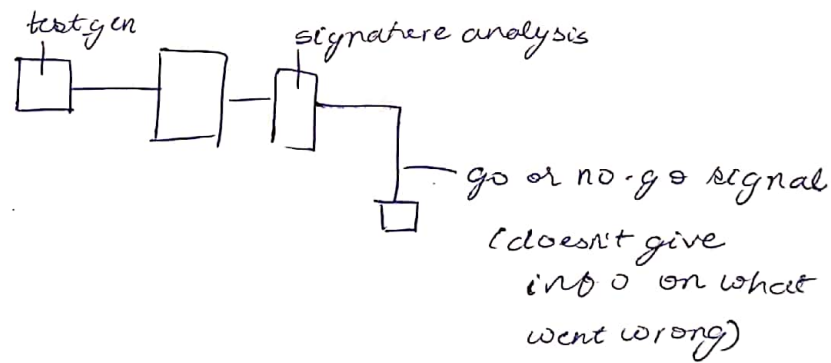 test gen
signature analysis
go or no-go signal
(doesn't give
info on what
went wrong)